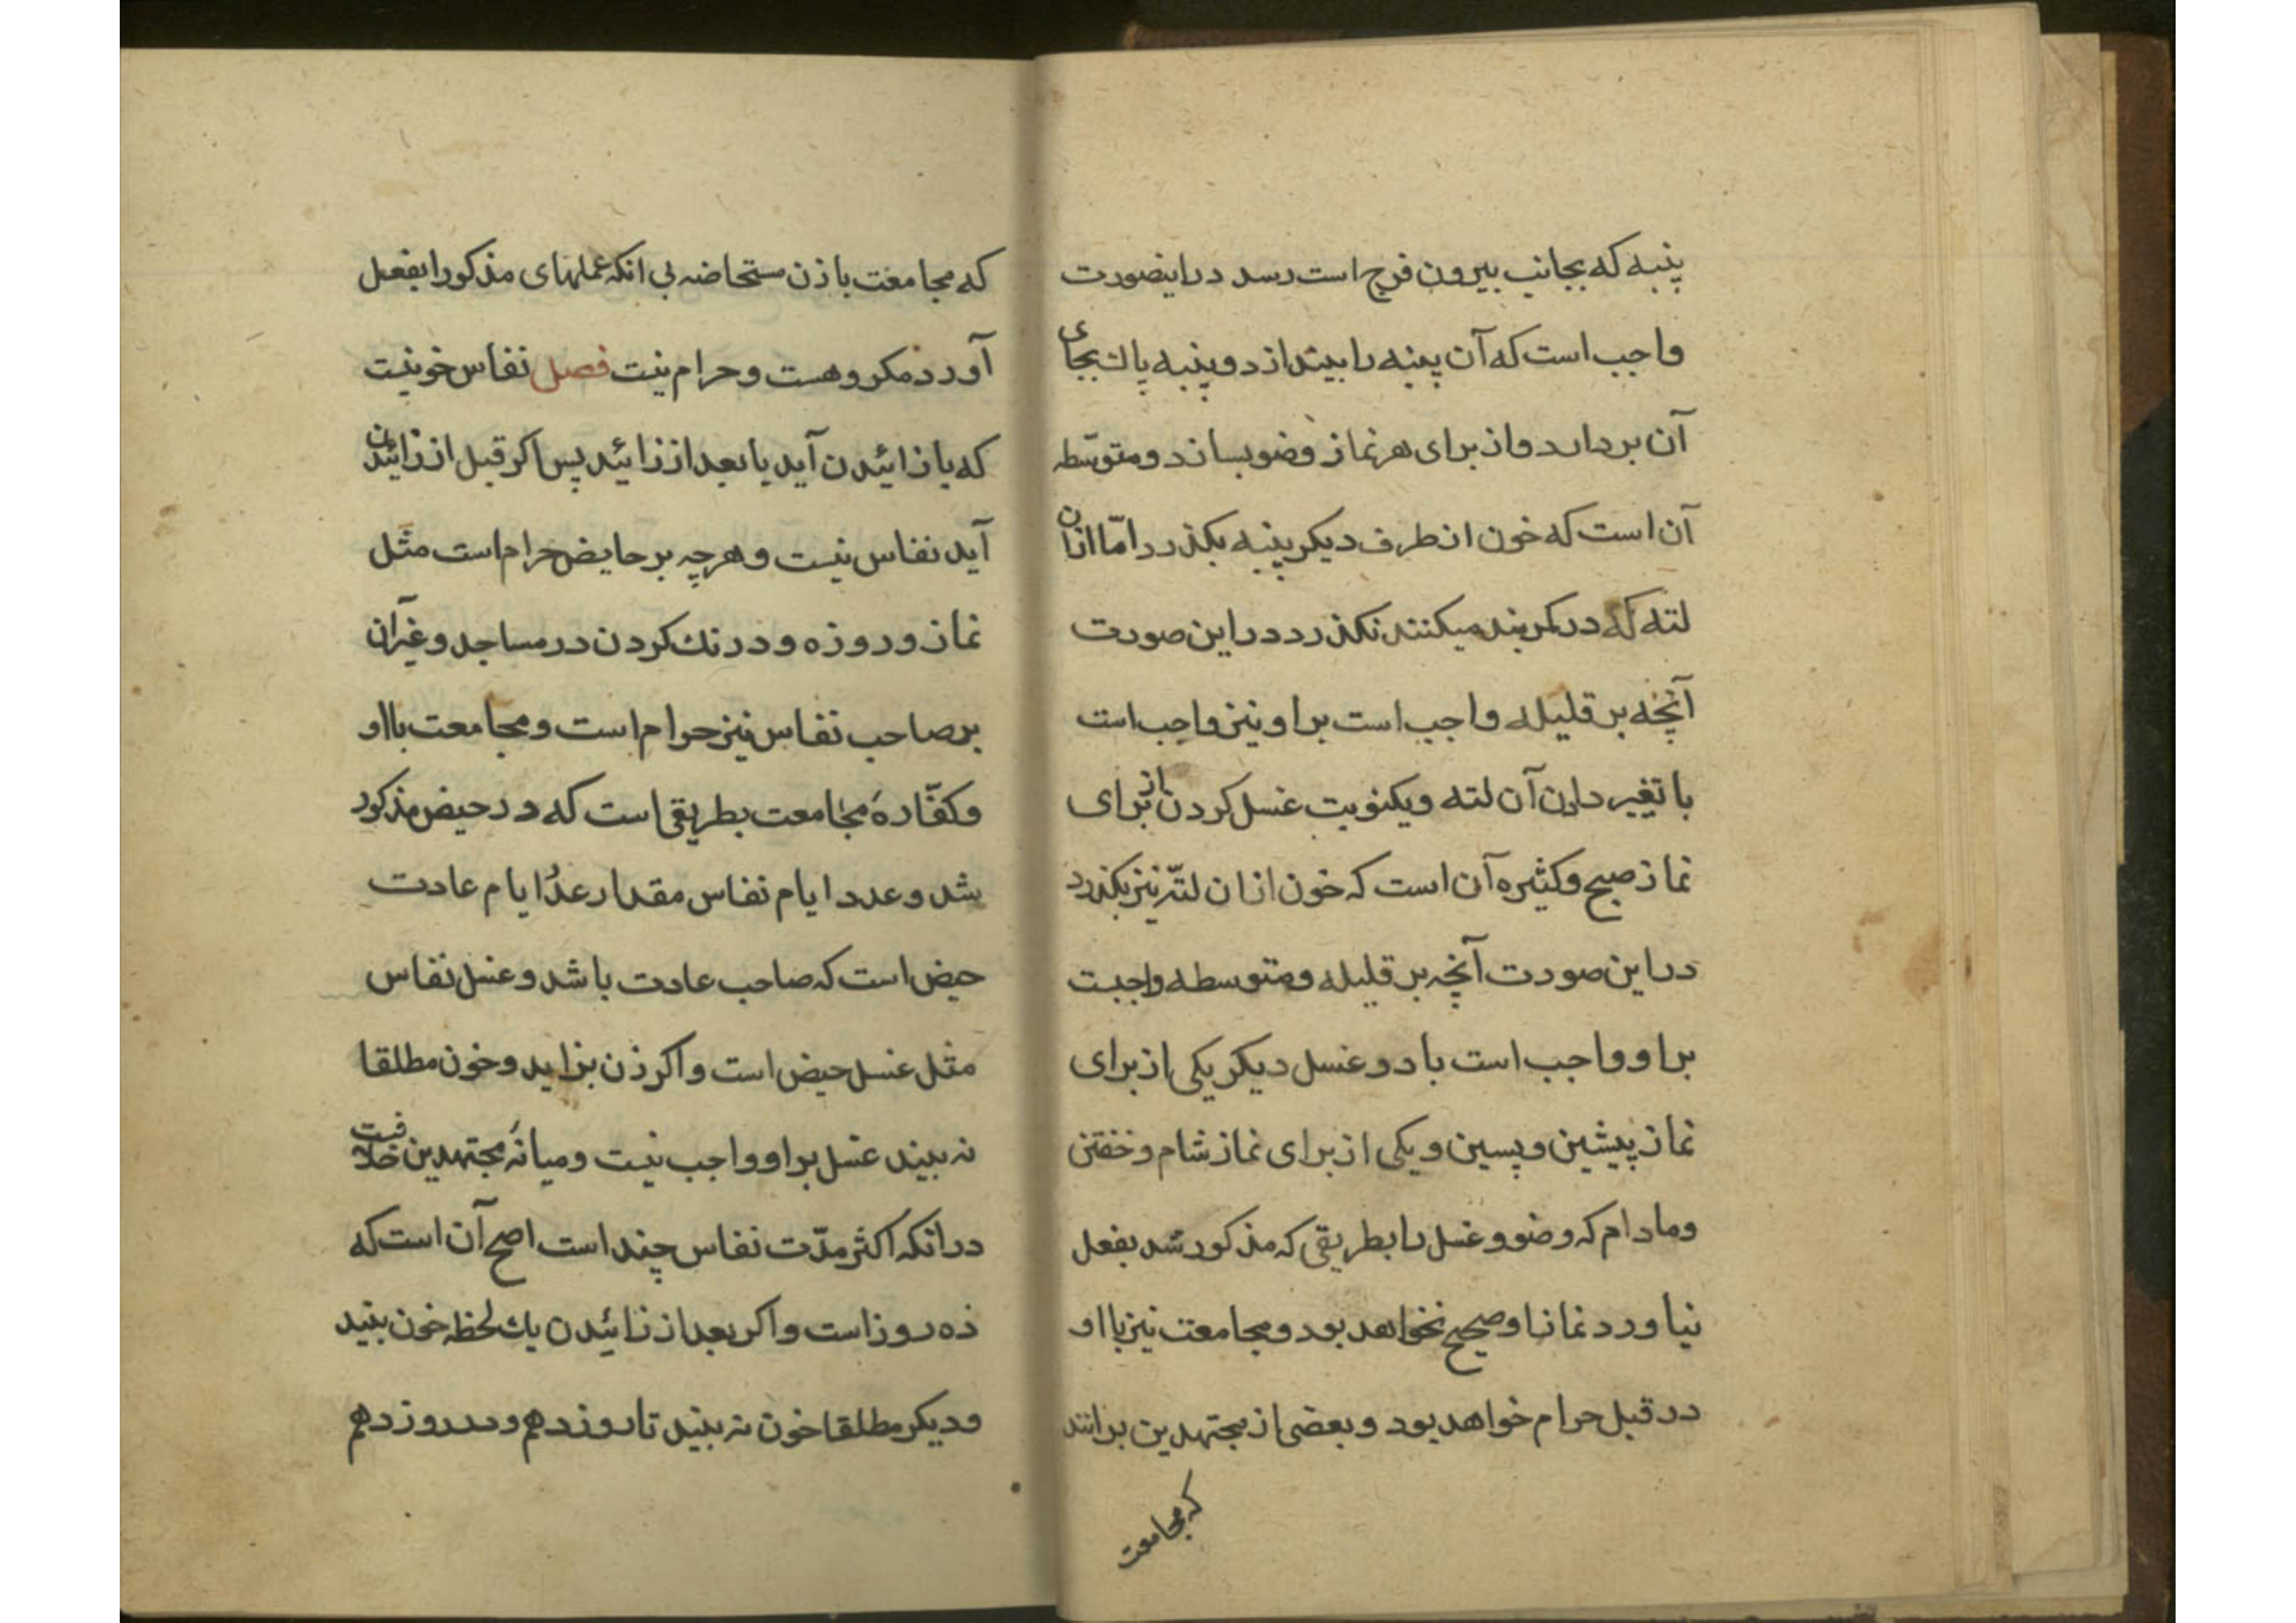 پنبه که بجانب بیرون فرج است رسد دراینصورت
واجب است که آن پنبه را بیندازد و پنبه پاک بجای
آن بردارد و از برای هر نماز وضو بسازد و متوسّطه
آن است که خون از طرف دیکر پنبه بکذرد امّا ازان
لته که در کمربند میکنند نکذرد در این صورت
آنچه بر قلیله واجب است بر او نیز واجب است
با تغییر دادن آن لته و یکنوبت غسل کردن از برای
نماز صبح و کثیره آن است که خون ازان لتّه نیز بکذرد
در این صورت آنچه بر قلیله و متوسطه واجبت
بر او واجب است با دو غسل دیکر یکی از برای
نماز پیشین و پسین و یکی از برای نماز شام و خفتن
و مادام که وضو و غسل را بطریقی که مذکور شد بفعل
نیاورد نماز او صحیح نخواهد بود و مجامعت نیز با او
در قبل حرام خواهد بود و بعضی از مجتهدین برانند
که مجامعت
که مجامعت با زن مستحاضه بی انکه عملهای مذکور را بفعل
آورد مکروهست و حرام نیت فصل نفاس خونیت
که با زائیدن آید یا بعد از زائید پس اکر قبل از زائیدن
آید نفاس نیست و هرچه بر حایض حرام است مثل
نماز و روزه و درنک کردن در مساجد و غیرآن
بر صاحب نفاس نیز حرام است و مجامعت با او
و کفّارهٔ مجامعت بطریقی است که در حیض مذکور
شد و عدد ایام نفاس مقدار عدد ایام عادت
حیض است که صاحب عادت باشد و غسل نفاس
مثل غسل حیض است و اکر زن بزاید و خون مطلقا
نه بیند غسل بر او واجب نیست و میانهٔ مجتهدین خلافیت
در انکه اکثر مدّت نفاس چند است اصح آن است که
ده روز است و اکر بعد از زائیدن یک لحظه خون بیند
و دیکر مطلقا خون نه بیند تا روز دهم و در روز دهم